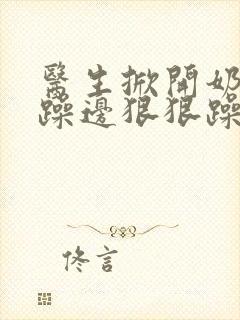 醫生掀開奶
躁邊狠狠躁
佟言